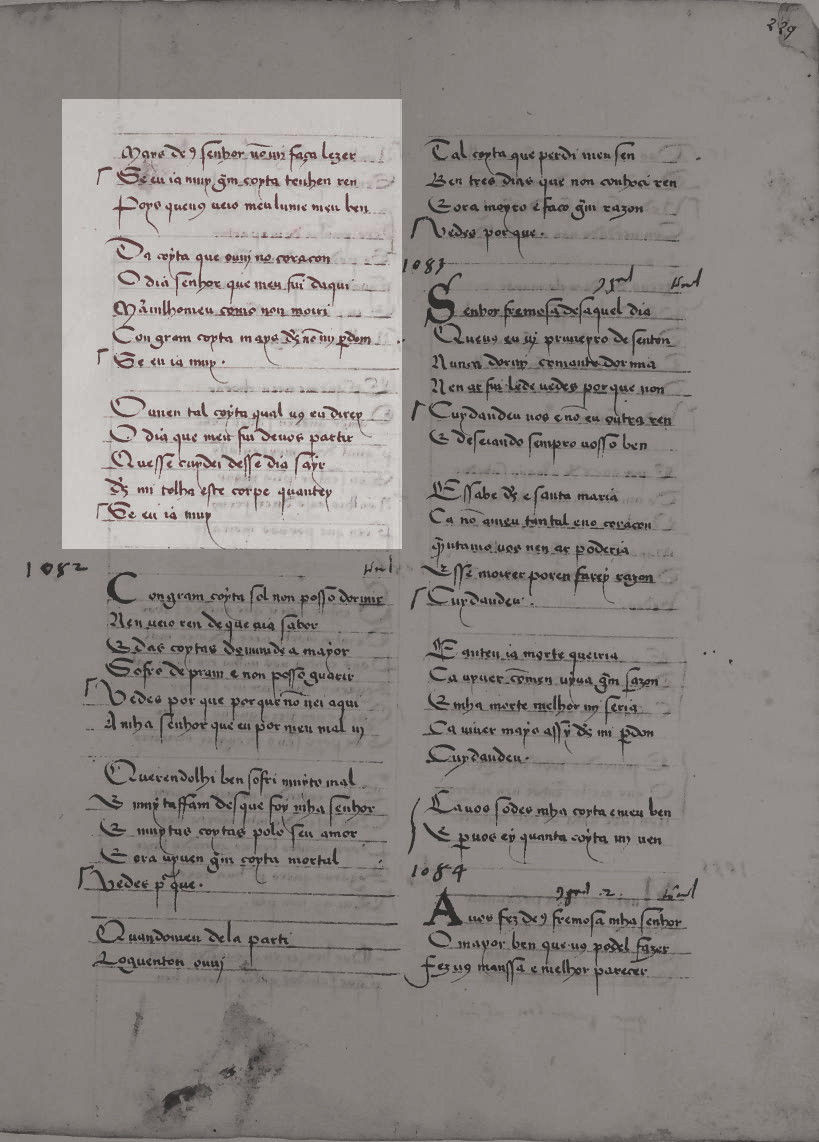 229
Mays de9 senhor nō mi faça lezer
Se eu ia muy gm̄ coyta tenhen ren
Poys queu9 ueio meu lume meu ben
Da coyta que ouui no coraçon
O dia senhor que meu fui daqui
Marauilhome como non moiri
Con gram coyta mays d's nō mi pdom
Se eu ia muy .
Ouuen tal coyta qual u9 eu direy
O dia que meu fui deuos partir
Quesse cuydei desse dia sayr
d's mi tolha este corpe quantey
Se eu ia muy
1082
Con gram coyta sol non posso dormir
Nen ueio ren de que aia sabor
E das coytas do mundo a mayor
Sofro de pram e non posso guarir
Vedes por que por que nō uei aqui
A mha senhor que eu por meu mal ui
Querendolhi ben sofri muyto mal
E muy taffam des que foy mha senhor
E muytas coytas polo seu amor
E ora uyuen gm̄ coyta mortal
Vedes pr que .
Quandomeu dela parti
Loguentou ouui
Tal coyta que perdi meu sen
Ben tres dias que non conhoci ren
E ora moyro e faço gm̄ razon
Vedes por que .
1083
Senhor fremosa desaquel dia
Queu9 eu ui primeyro de senton
Nunca dormi comante dormia
Nen ar fui lede uedes por que non
Cuydandeu uos e nō eu outra ren
E deseiando sempro uosso ben
Essabe d's e santa maria
Ca nō ameu tantal eno coraçon
quantamo uos nen ar poderia
Esse moirer poren farey razon
Cuydandeu .
E anteu ia morte queiria
Ca uyuer comeu uyua gm̄ sazon
E mha morte melhor mi seria
Ca uiuer mays assy d's mi pdon
Cuydandeu .
Ca uos sodes mha coyta e meu ben
E p uos ey quanta coyta mi uen
1084
A uos fez de9 fremosa mha senhor
O mayor ben que u9 podel fazer
Fez u9 manssa e melhor parecer